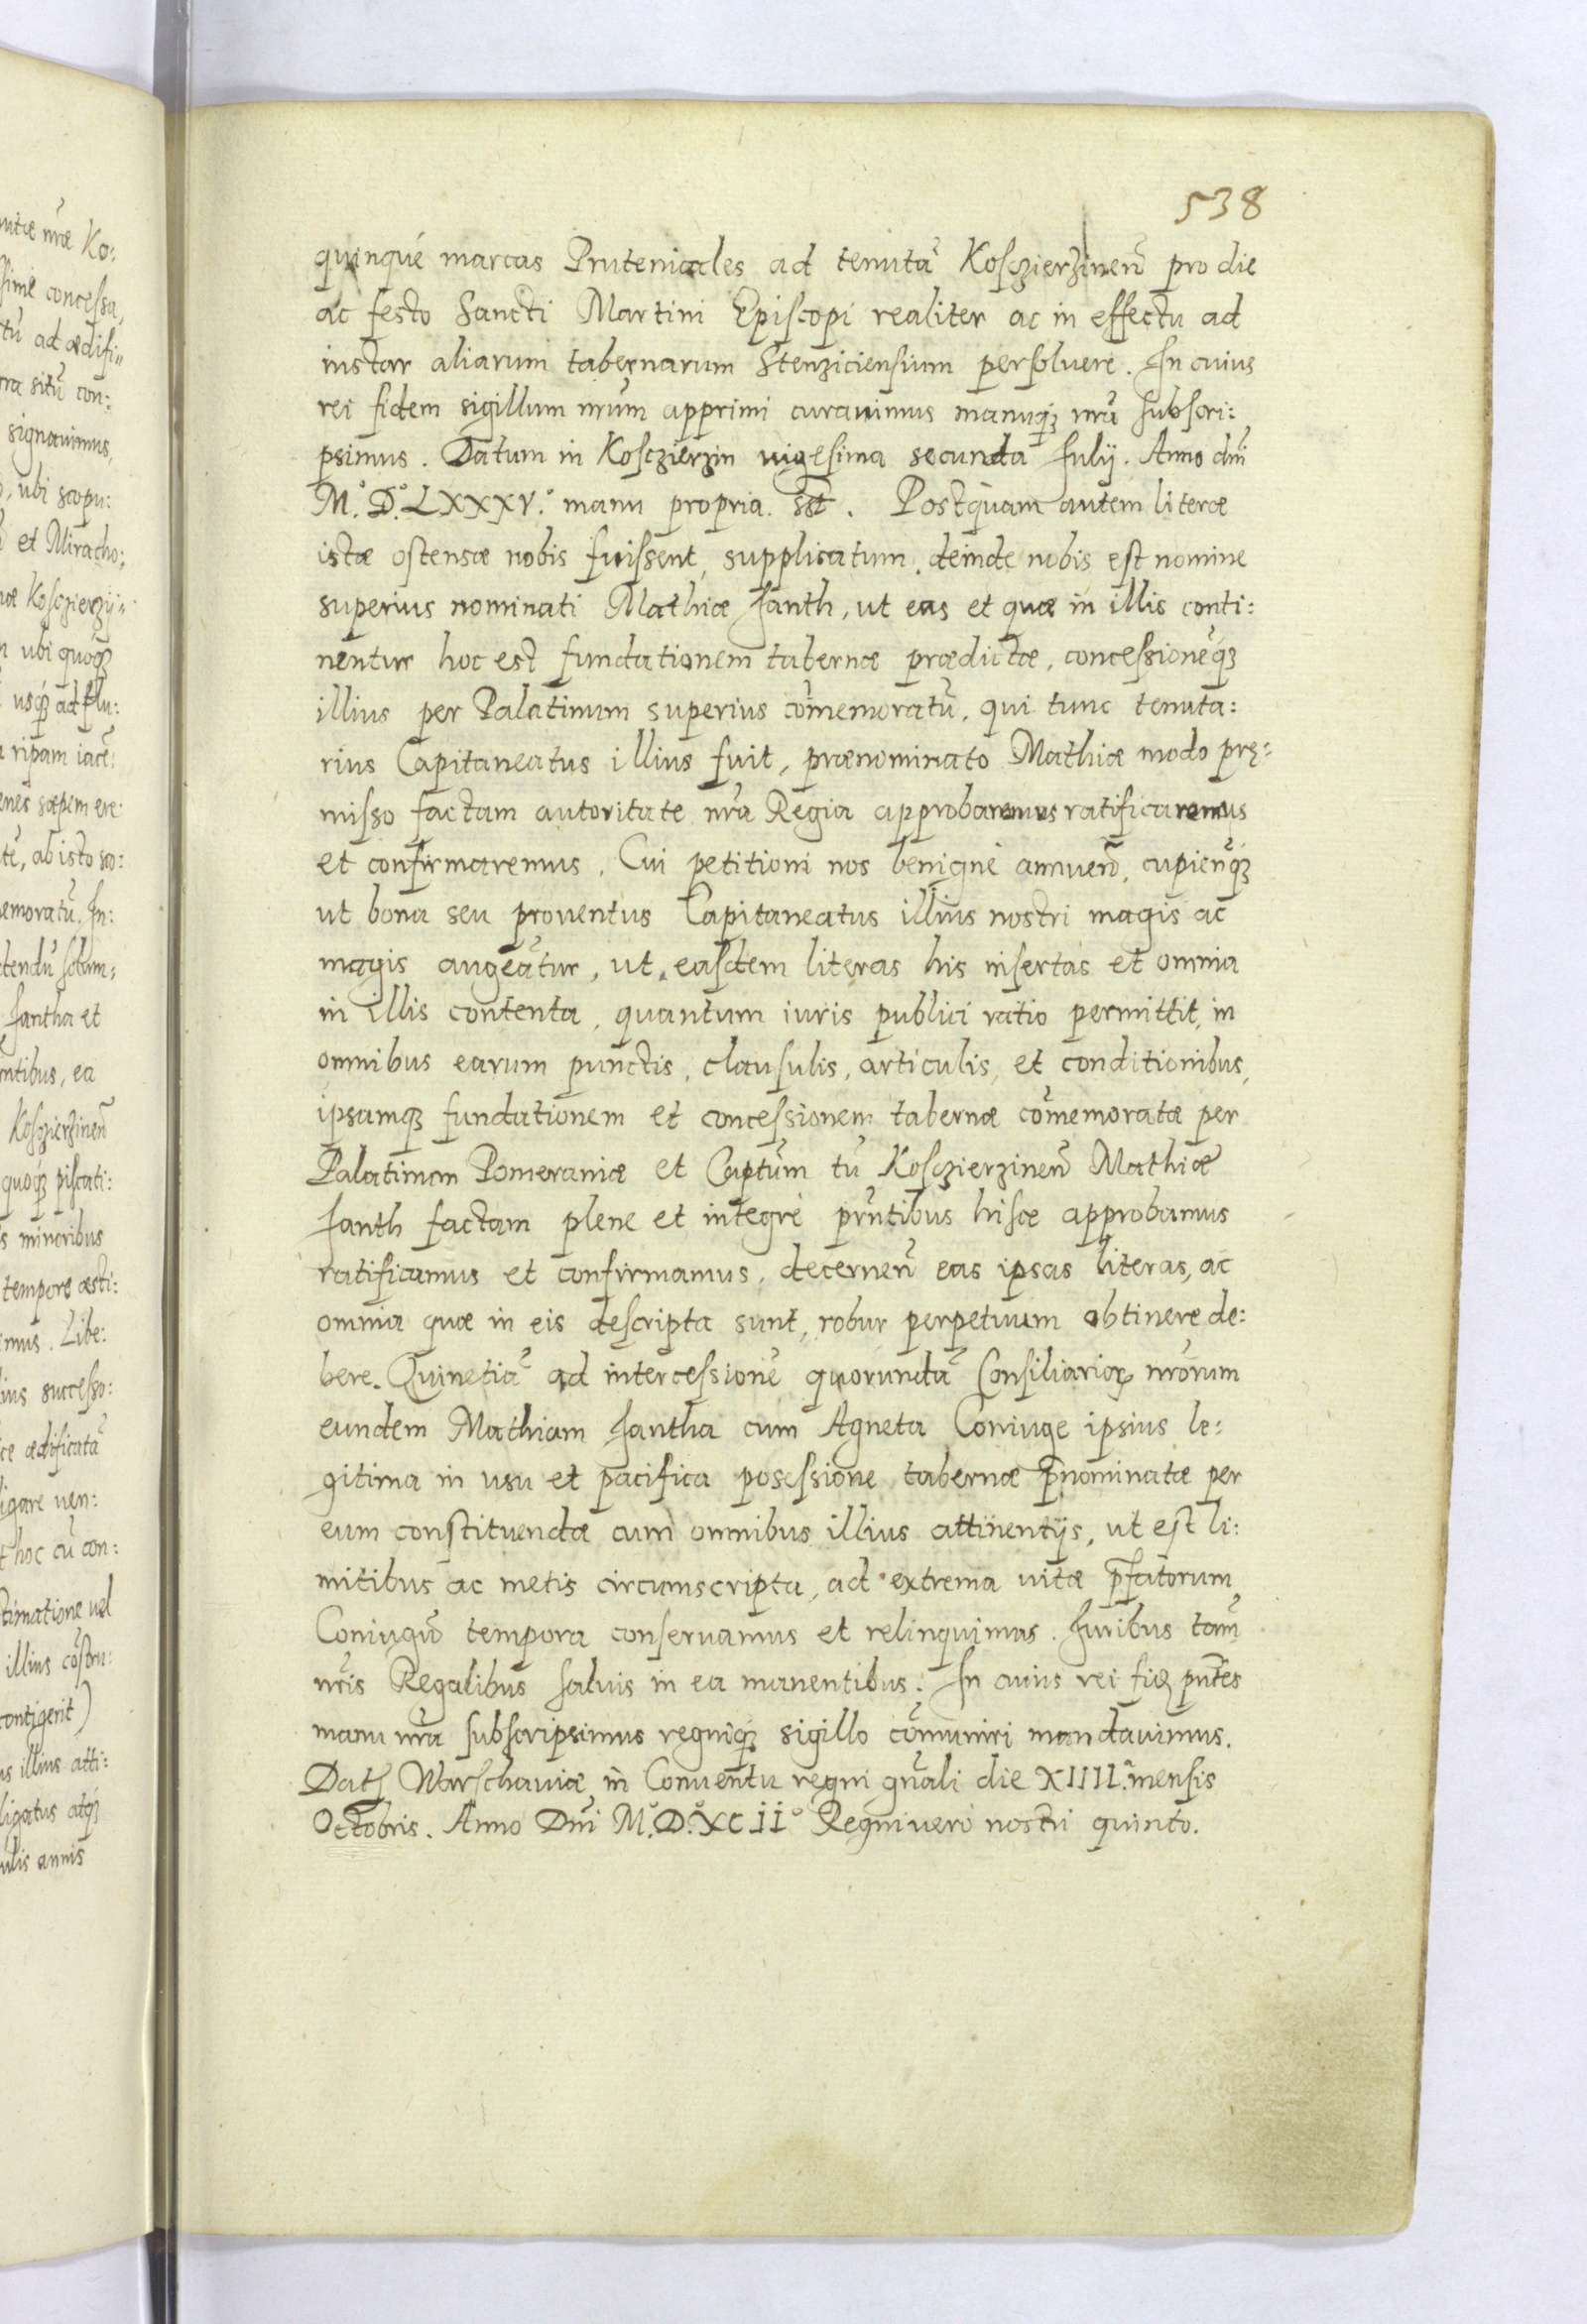 538
quinque marcas Prutenicales ad tenutã Kosczierzineñ pro die
ac festo Sancti Martini Episcopi realiter ac in effectu ad
instar aliarum tabernarum Stenziciensium persoluere. In cuius
rei fidem sigillum nr̃um apprimi curauimus manuq; nr̃a subscri:
psimus. Datum in Kosczierzin uigesima secunda Julij. Anno dñi
M.° D.° LXXXV.° manu propria. sst. Postquam autem literæ
istæ ostensæ nobis fuissent, supplicatum deinde nobis est nomine
superius nominati Mathiæ Janth, ut eas et quæ in illis conti:
nentur hoc est fundationem tabernæ prædictæ, concessionẽq;
illius per Palatinum superius com̃emoratũ, qui tunc tenuta:
rius Capitaneatus illius fuit, prænominato Mathiæ modo prę:
misso factam autoritate nr̃a Regia approbaremus ratificaremus
et confirmaremus. Cui petitioni nos benignè annueñ, cupieñq;
ut bona seu prouentus Capitaneatus illius nostri magis ac
magis augeãtur, ut easdem literas his insertas et omnia
in illis contenta, quantum iuris publici ratio permittit, in
omnibus earum punctis, clausulis, articulis, et conditionibus,
ipsamq; fundationem et concessionem tabernæ com̃emoratæ per
Palatinum Pomeraniæ et Captũm tũ Kosczierzineñ Mathiæ
Janth factam plene et integrè pr̃ntibus hisce approbamus
ratificamus et confirmamus, decerneñ eas ipsas literas, ac
omnia quæ in eis descripta sunt, robur perpetuum obtinere de:
bere. Quinetiã ad intercessionẽ quorundã Consiliarioꝝ nr̃orum
eundem Mathiam Jantha cum Agneta Coniuge ipsius le:
gitima in usu et pacifica posessione tabernæ p̃nominatæ per
eum constituendæ cum omnibus illius attinentijs, ut est li:
mitibus ac metis circumscripta, ad extrema uitæ p̃fatorum
Coniugũ tempora conseruamus et relinquimus. Juribus tam̃
nr̃is Regalibus saluis in ea manentibus. In cuius rei fiꝫ pñtes
manu nr̃a subscripsimus regniq; sigillo com̃uniri mandauimus.
Datꝭ Warschauiæ in Conuentu regni gñali die XIIII.ª mensis
Octobris. Anno Dñi M.° D.° XC II° Regni uero nostri quinto.